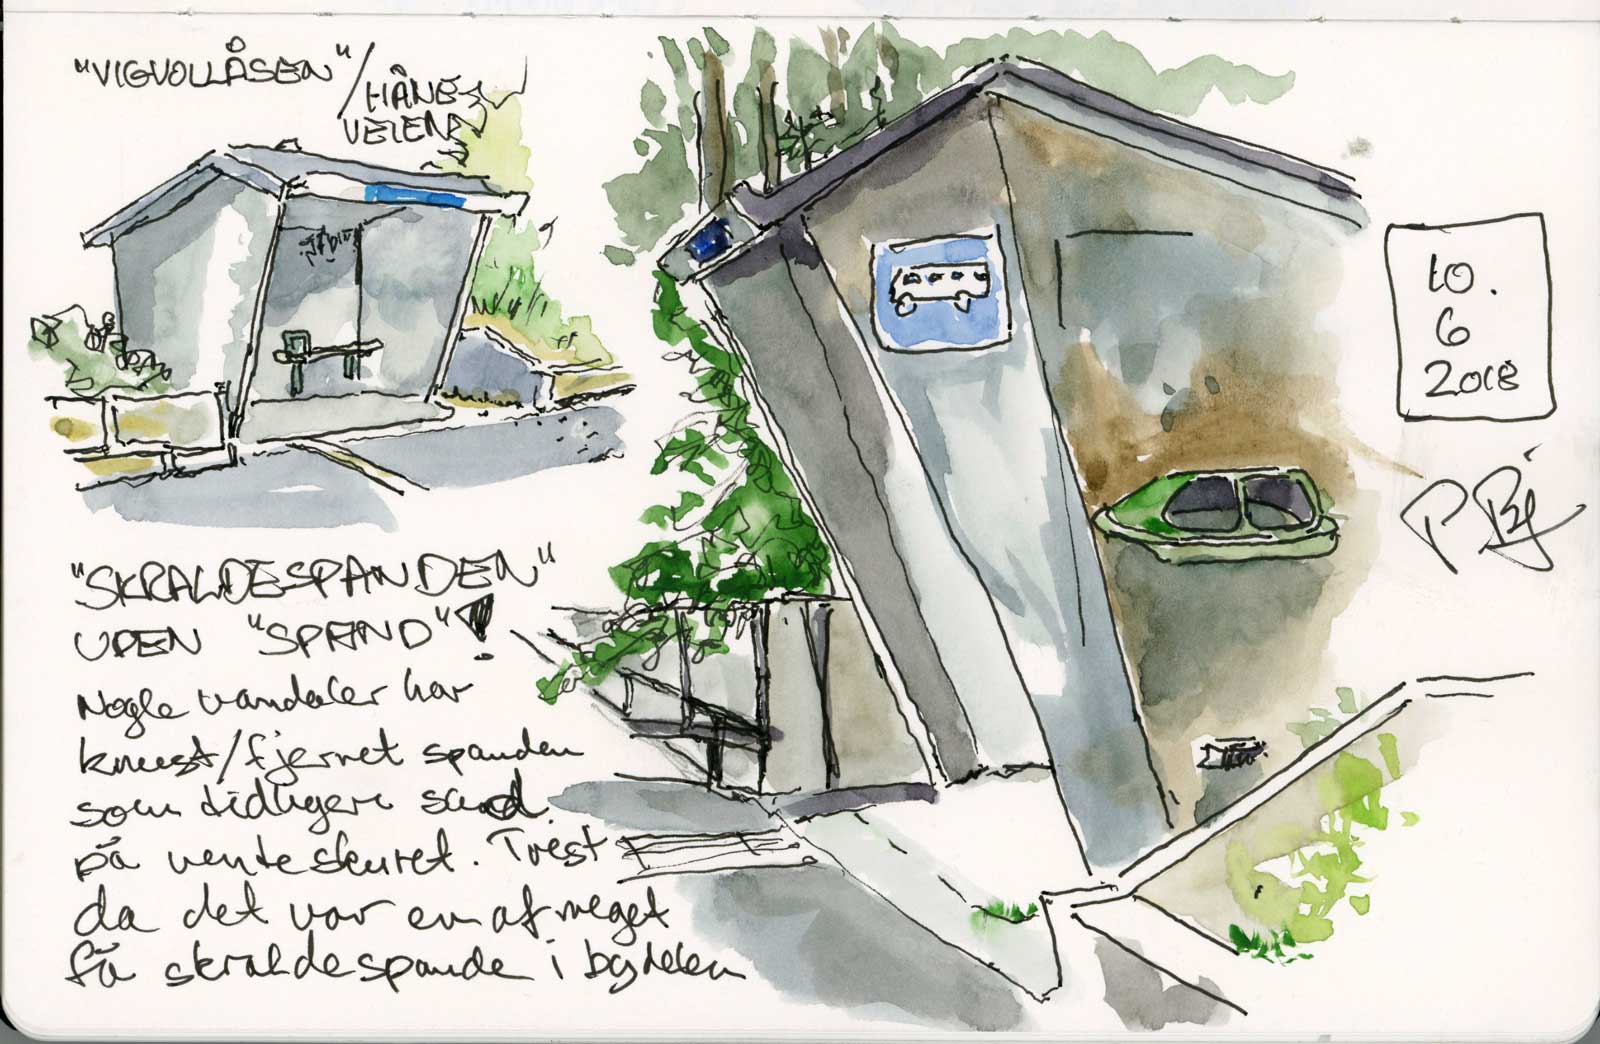 "VIGVOLLÅSEN"/HÅNES
VEIEN
10.
6
2018
"SKRALDESPANDEN"
UDEN "SPAND"!
Nogle vandaler har
knust/fjernet spanden
som tidligere sad
på venteskuret. Trest
da det var en af meget
få skraldespande i bydelen